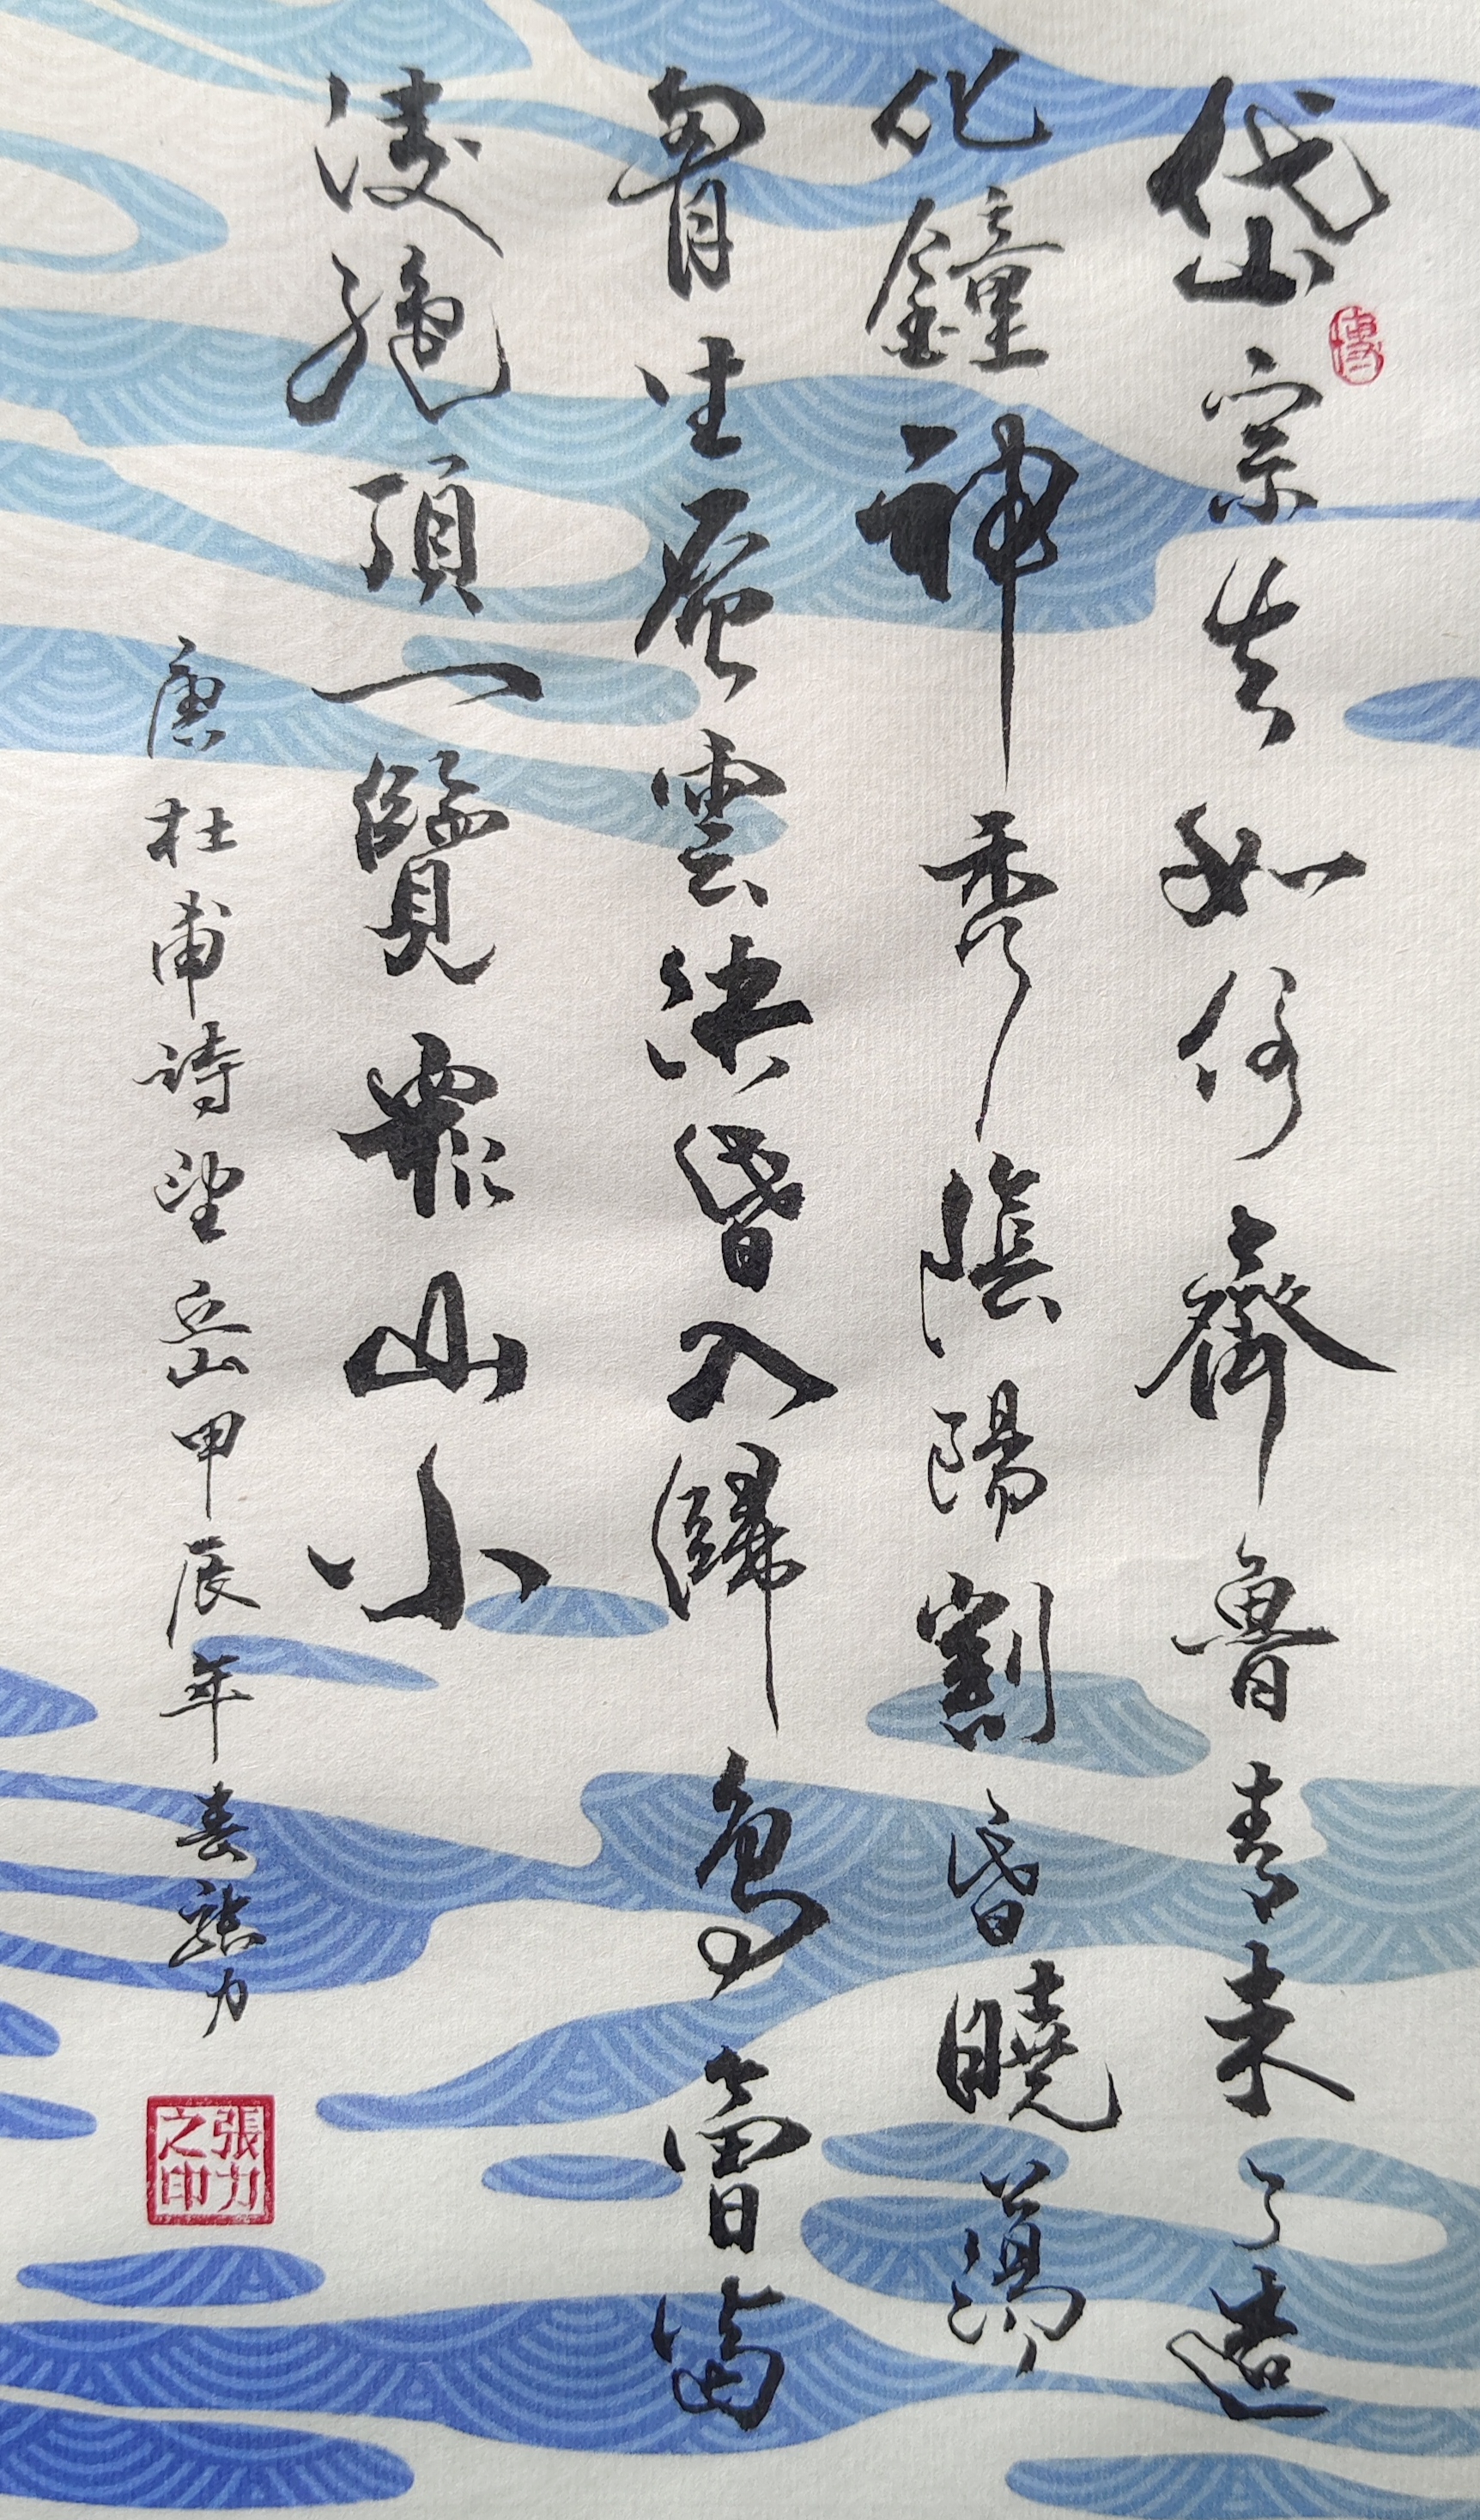 岱宗夫如何齊魯青未了造
化鐘神秀陰陽割昏曉蕩
胷生層雲決眥入歸鳥會當
淩絕頂一覽眾山小
唐杜甫詩望岳甲辰年春張力
張力之印